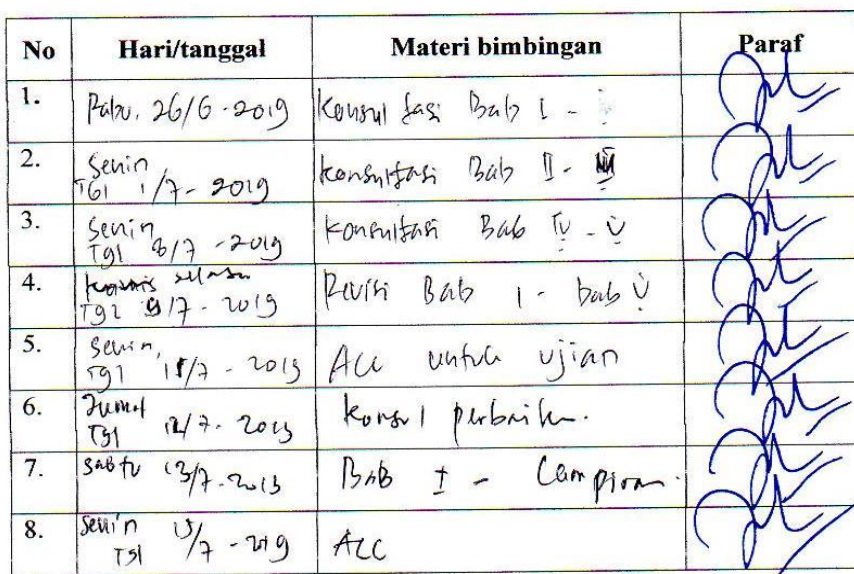 No Hari/tanggal Materi bimbingan Paraf
1. Rabu, 26/6-2019 Konsultasi Bab I -
2. Senin
Tgl 1/7-2019 Konsultasi Bab II - III
3. Senin
Tgl 8/7-2019 Konsultasi Bab IV - V
4. selasa
Tgl 9/7-2019 Revisi Bab I - bab V
5. Senin,
Tgl /7-2019 ACC untuk ujian
6. Jumat
Tgl 12/7-2019 Konsul perbaikan.
7. Sabtu 13/7-2019 Bab I - Lampiran.
8. Senin
Tgl 15/7-2019 ACC